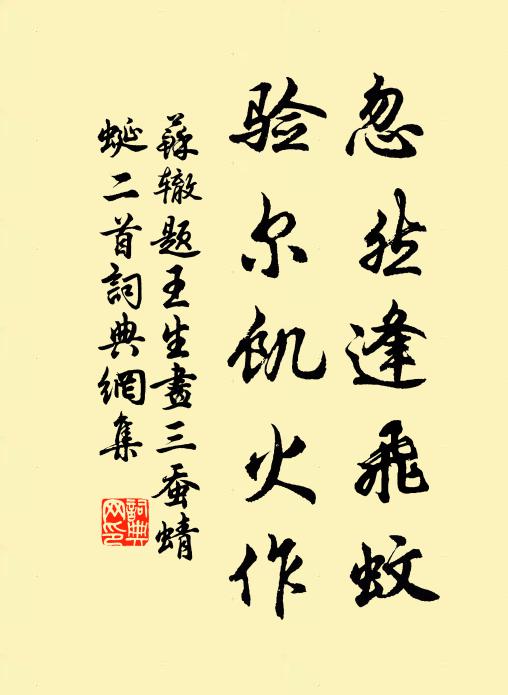 忽然逢飛蚊
验尔飢火作
蘇辙题王生畫三蚕蜻
蜒二首詞典網集
詞典
网印